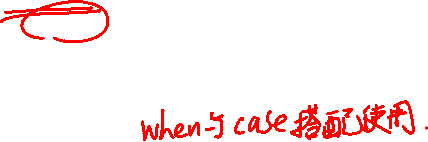 when与case搭配使用.